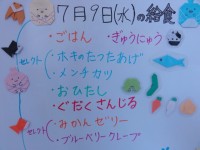 7月9日(水)の給食
・ごはん ・ぎゅうにゅう
セレクト ・ホキのたつたあげ
・メンチカツ
・おひたし
・ぐだくさんじる
セレクト ・みかんゼリー
・ブルーベリークレープ